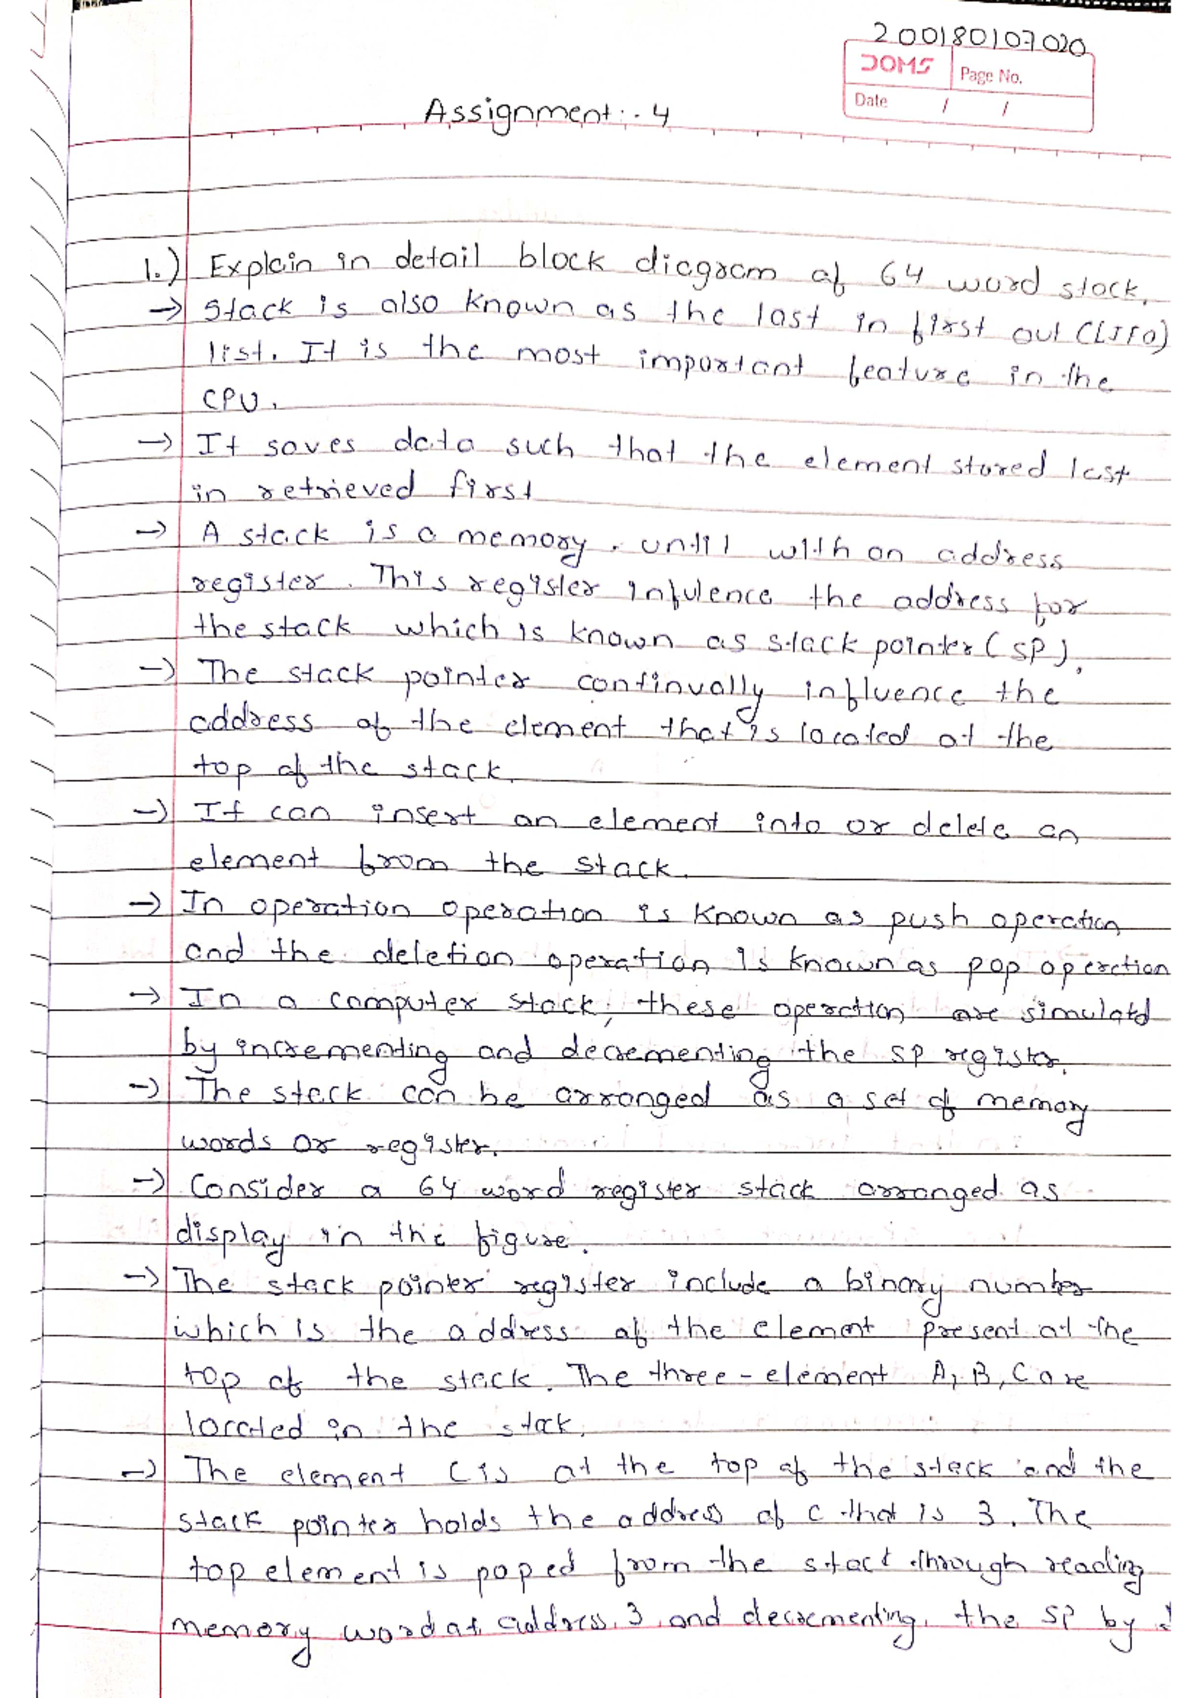 200180107020
DOMS
Page No.
Date / /
Assignment:-4
1.) Explain in detail block diagram of 64 word stack.
→ Stack is also known as the last in first out (LIFO)
list. It is the most important feature in the
CPU.
→ It saves data such that the element stored last
in retrieved first
→ A stack is a memory. until with an address
register. This register infulence the address for
the stack which is known as stack pointer (SP).
→ The stack pointer continually influence the
address of the element that is located at the
top of the stack.
→ It can insert an element into or delete an
element from the stack.
→ In operation operation is known as push operation
and the deletion operation is known as pop operation
→ In a computer stack, these operation are simulatd
by incrementing and decrementing the SP register.
→ The stack can be arranged as a set of memory
words or register.
→ Consider a 64 word register stack arranged as
display in the figure.
→ The stack pointer register include a binary number
which is the address of the element present at the
top of the stack. The three-element A, B, C are
located in the stack.
→ The element C is at the top of the stack and the
stack pointer holds the address of C that is 3. The
top element is poped from the stack through reading
memory word at address 3 and decrementing the SP by